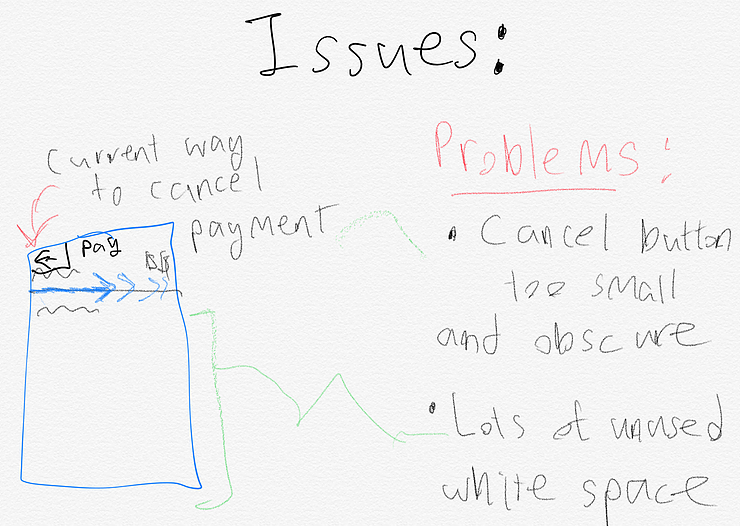 Issues:
Current way
to cancel
payment
Pay
Problems:
• Cancel button
too small
and obscure
• Lots of unused
white space